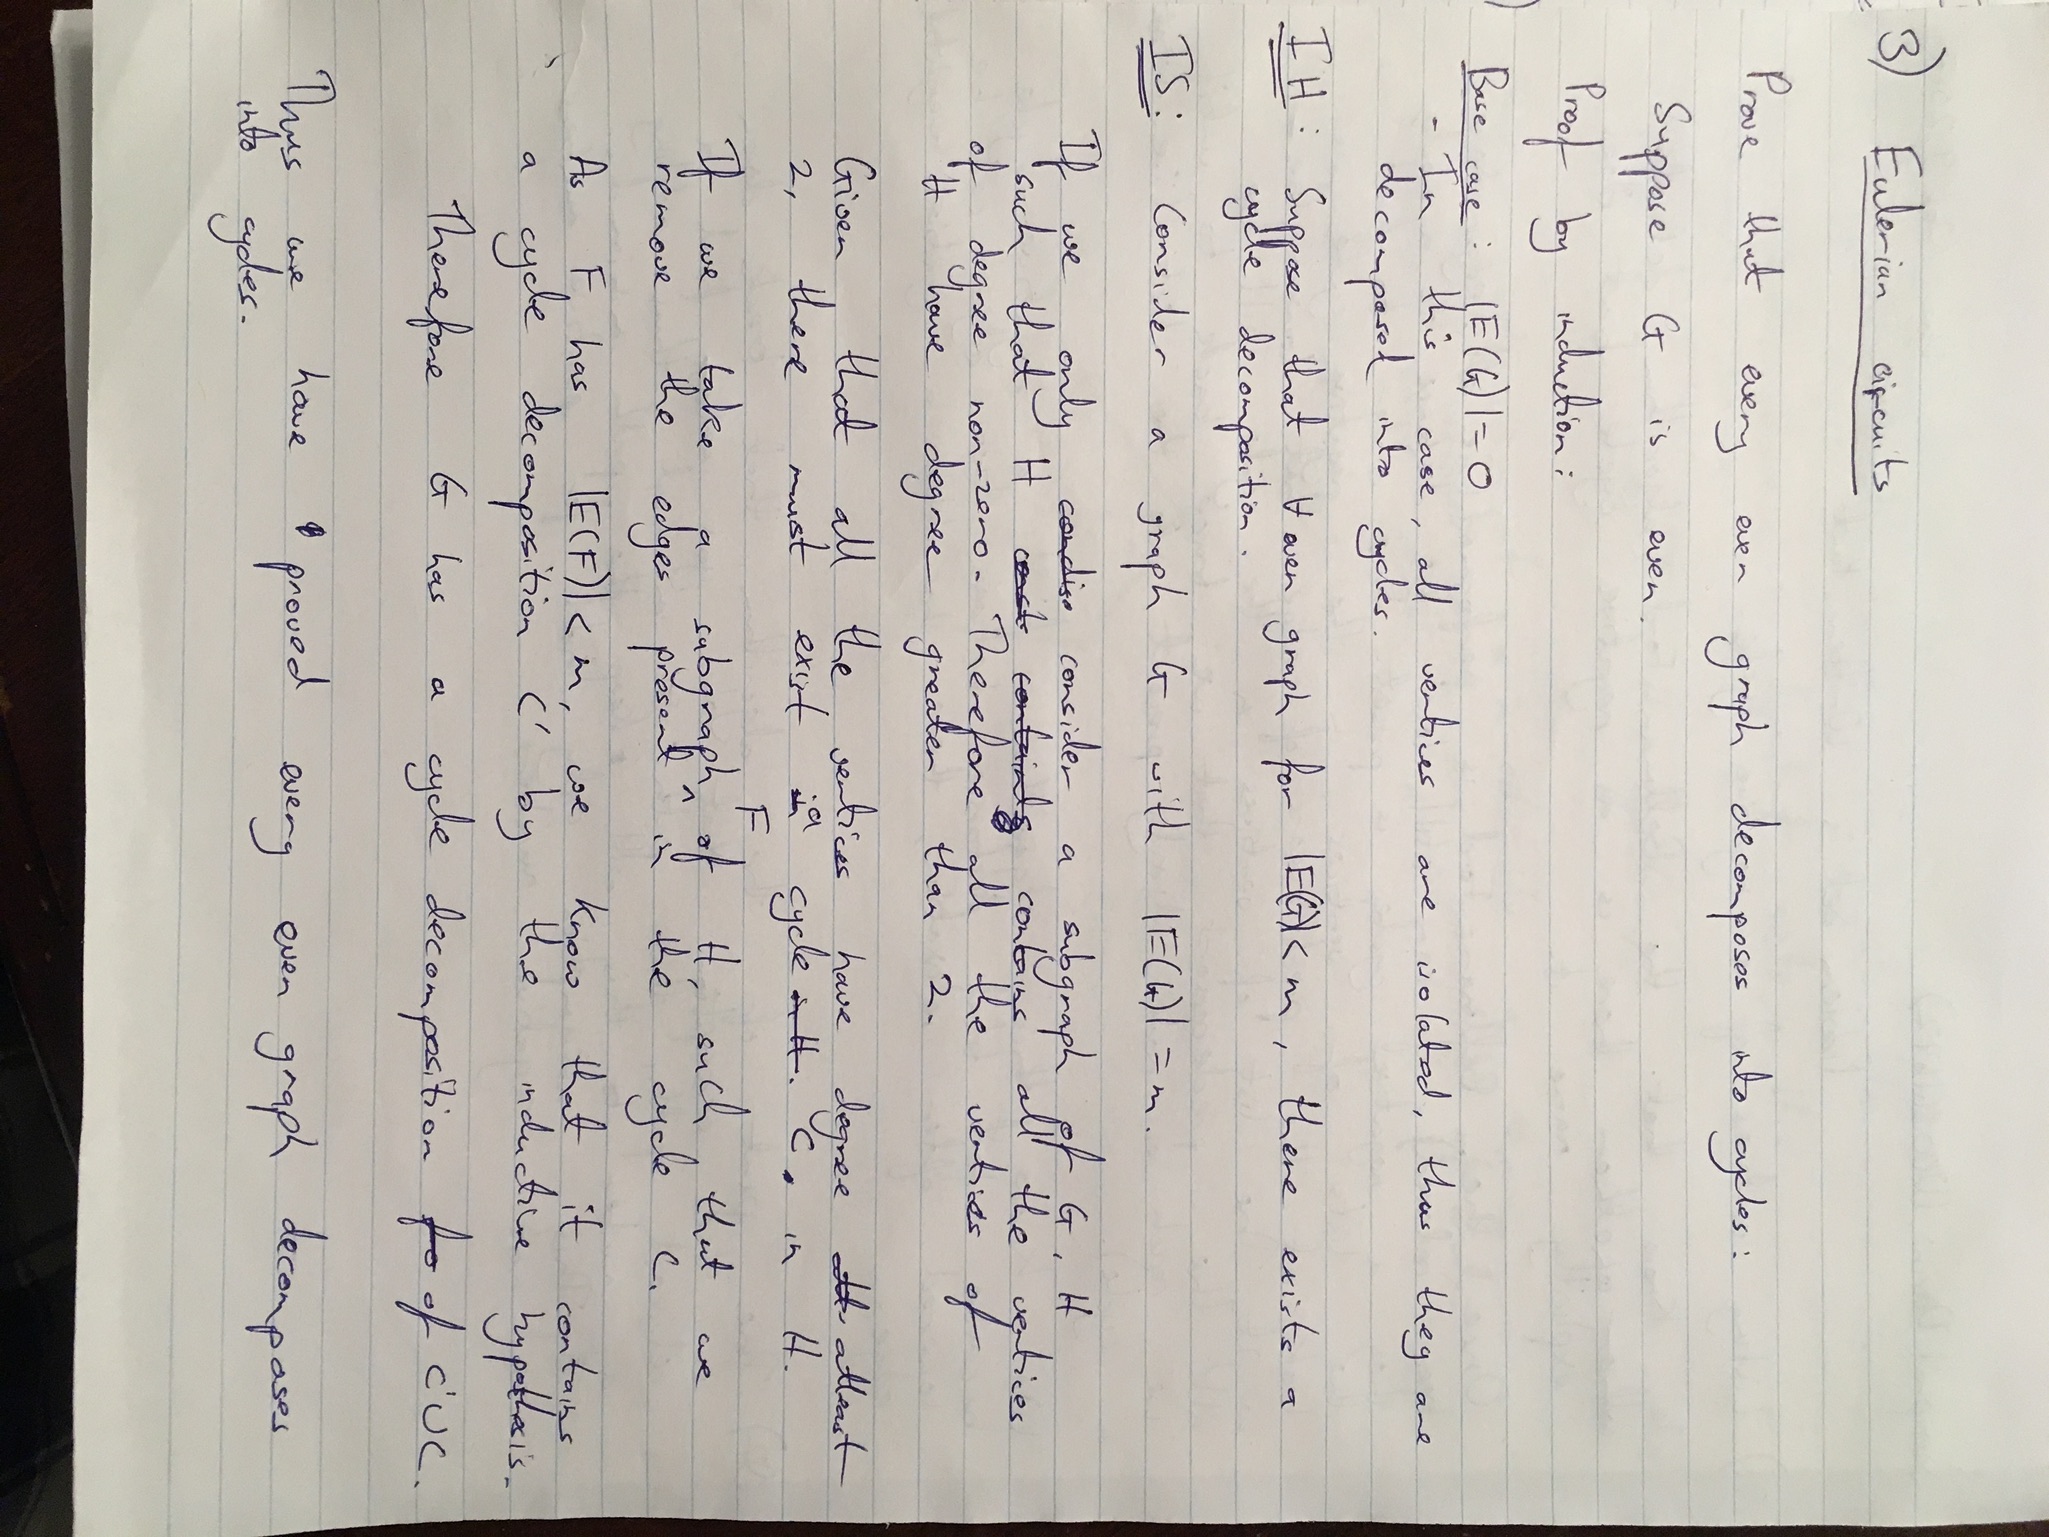 3) Eulerian circuits
Prove that every even graph decomposes into cycles:
Suppose G is even.
Proof by induction:
Base case: |E(G)|=0
- In this case, all vertices are isolated, thus they are
decomposed into cycles.
IH: Suppose that ∀ even graph for |E(G)|< m, there exists a
cycle decomposition.
IS: Consider a graph G with |E(G)| = m.
If we only consider a subgraph of G, H
such that H contains all the vertices
of degree non-zero. Therefore all the vertices of
H have degree greater than 2.
Given that all the vertices have degree atleast
2, there must exist a cycle C. in H.
If we take a subgraph F of H, such that we
remove the edges present in the cycle C.
As F has |E(F)|< m, we know that it contains
a cycle decomposition C' by the inductive hypothesis.
Therefore G has a cycle decomposition of C'UC.
Thus we have proved every even graph decomposes
into cycles.